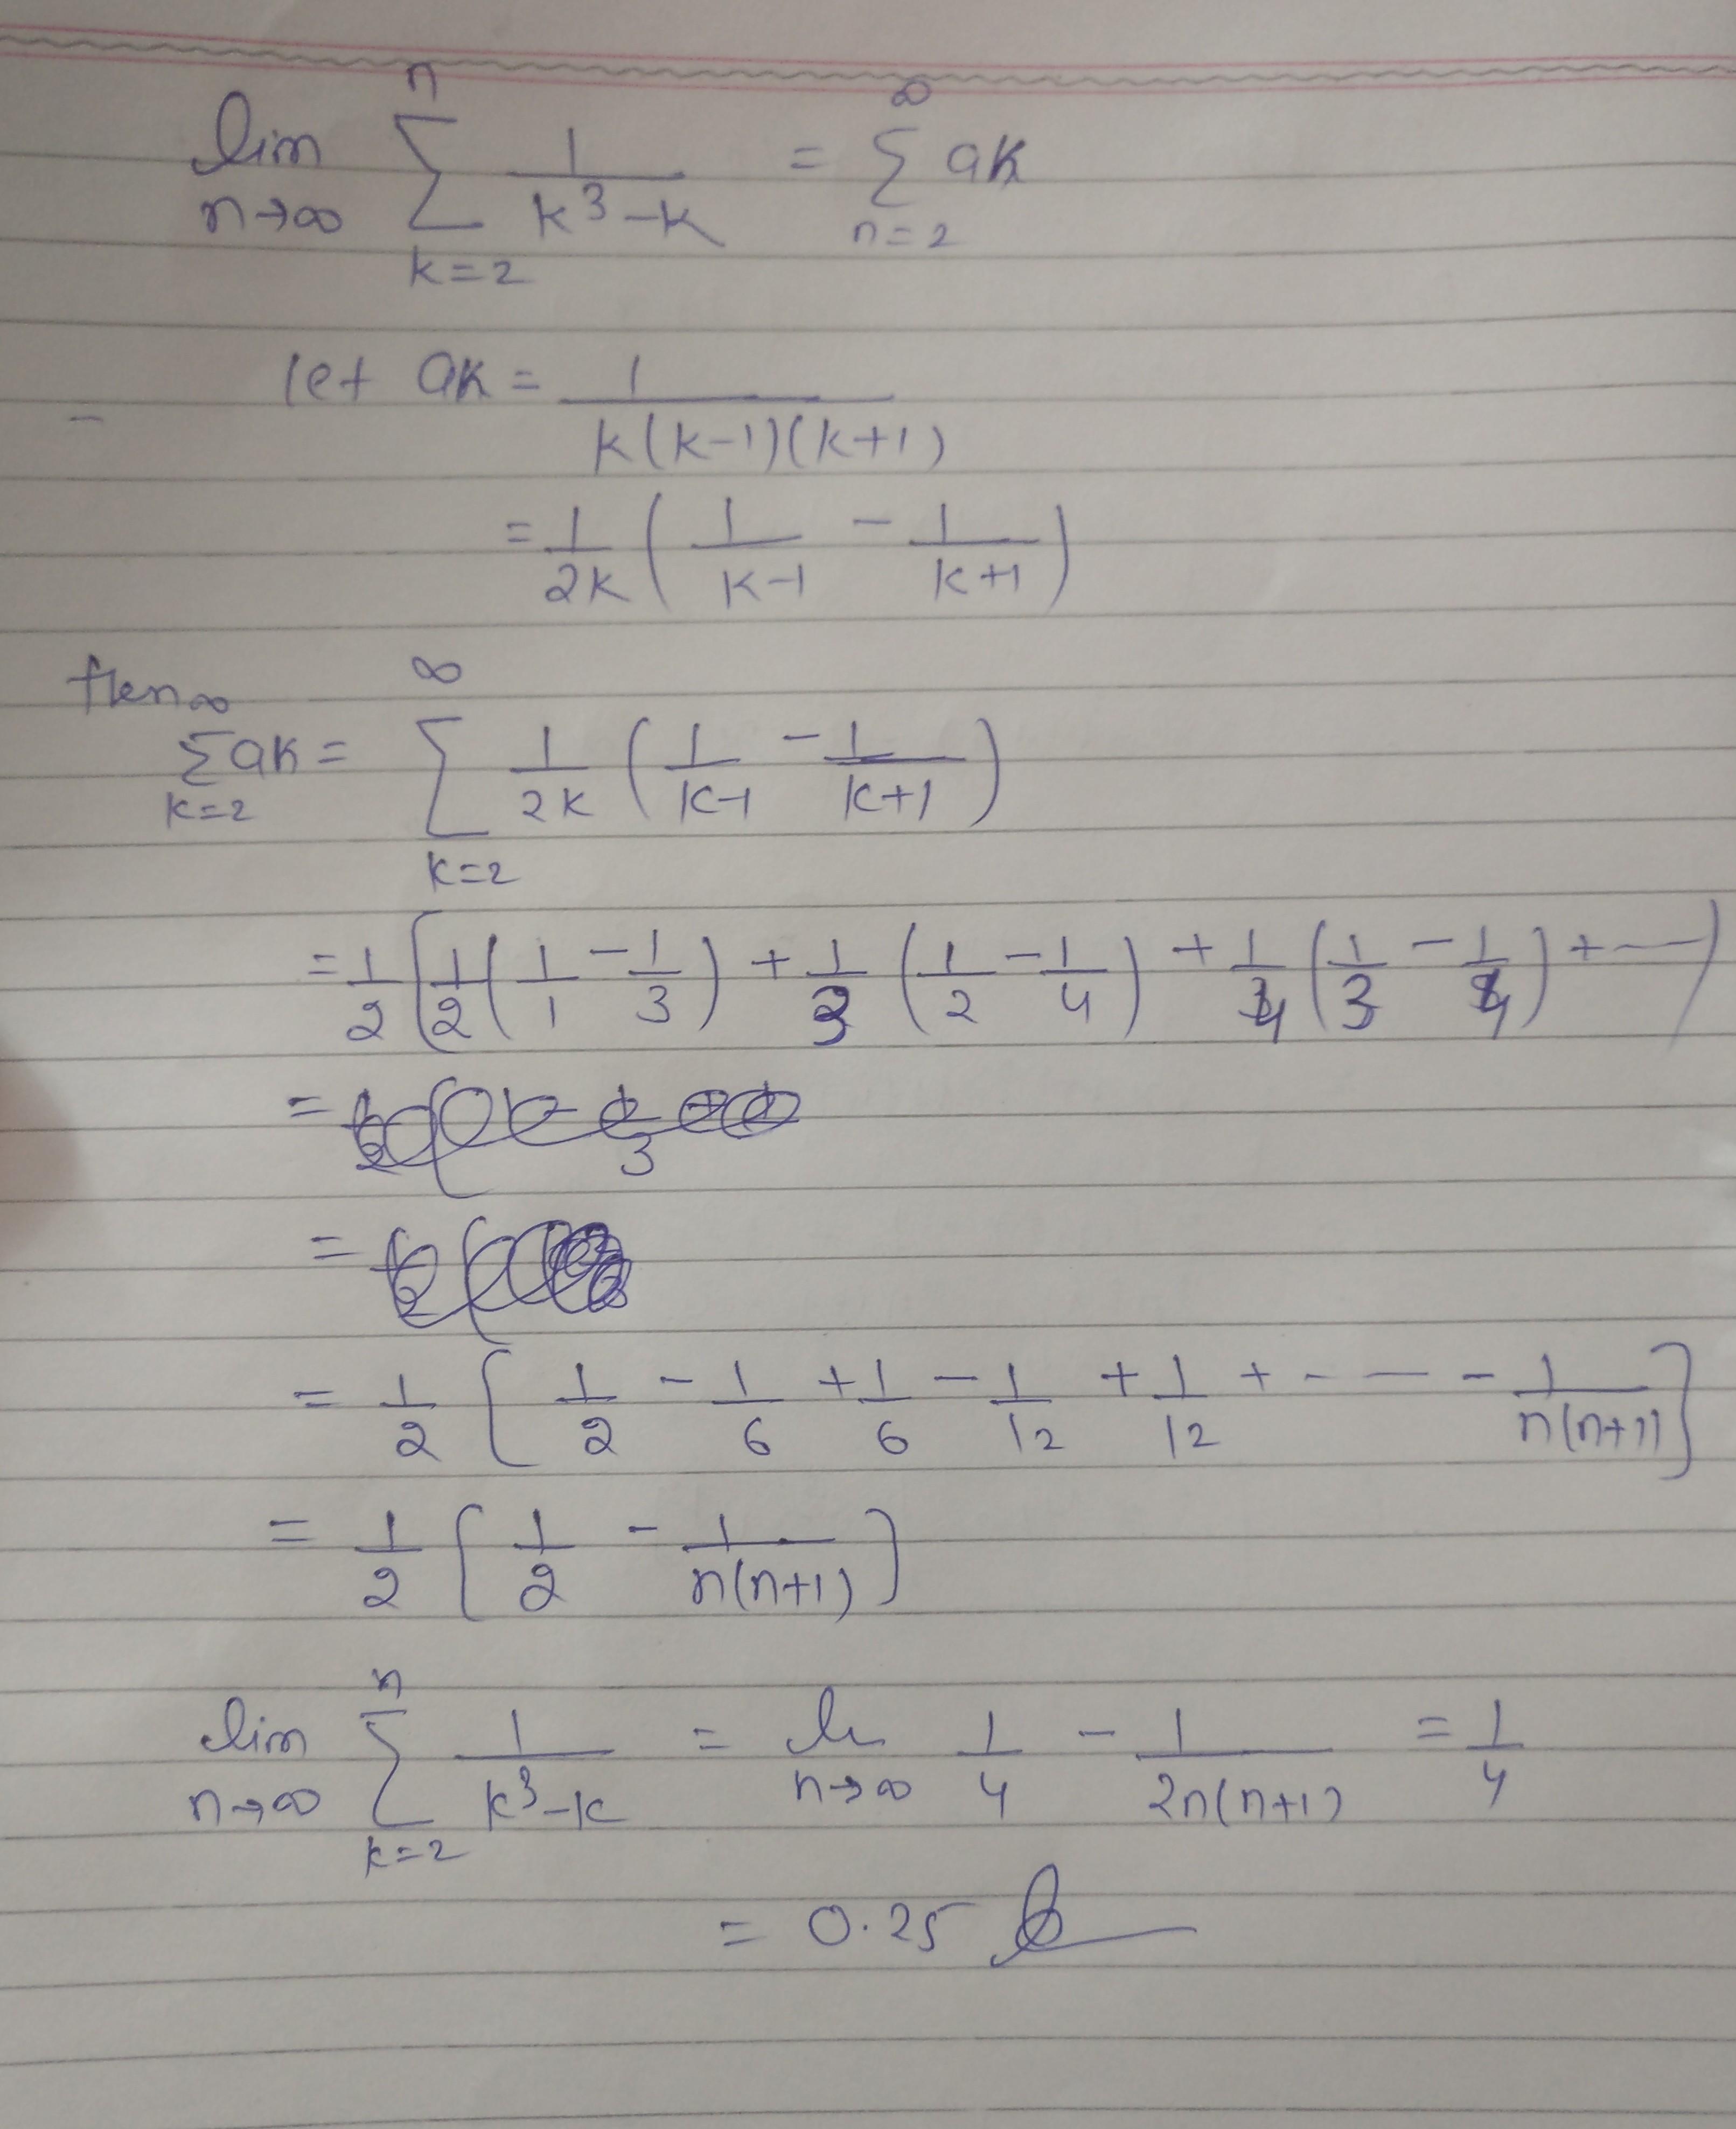 lim n→∞ n Σ k=2 1/(k³-k) = ∞ Σ n=2 ak
let ak = 1/(k(k-1)(k+1))
= 1/2k (1/(k-1) - 1/(k+1))
then
∞ Σ k=2 ak = ∞ Σ k=2 1/2k (1/(k-1) - 1/(k+1))
= 1/2 [1/2 (1/1 - 1/3) + 1/3 (1/2 - 1/4) + 1/4 (1/3 - ) + ---)
= 1/2 [1/2 - 1/6 + 1/6 - 1/12 + 1/12 + --- - 1/(n(n+1))]
= 1/2 [1/2 - 1/(n(n+1))]
lim n→∞ n Σ k=2 1/(k³-k) = n→∞ 1/4 - 1/(2n(n+1)) = 1/4
= 0.25